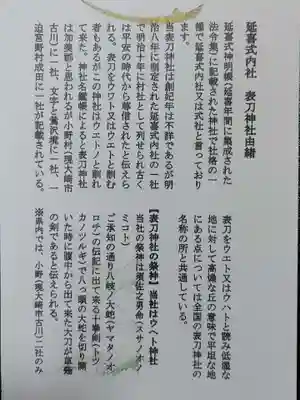 延喜式内社　表刀神社由緒
延喜式神明帳(延喜年間に集成された
法令集)に記載された神社で社格の一
種で延喜式内社又は式社と言っており
ます。
当表刀神社は創祀年は不詳であるが明
治八年に制定された延喜式内社の一社
で明治十年に村社として列せられ古く
は平安の時代から尊信されたと伝えら
れる。表刀をウエト又はウエトと訓む
者もあるがこの神社はウエトノと訓れ
て来た。神社名鑑帳によると表刀神社
は加美郡と思われるが小野村(現大崎市
古川)に一社、文字と鷲沢境に一社、一
迫宮野村成田に一社が記載されている。
表刀をウエト又はウヘトと読み低湿な
地に対して高燥な丘の意味で平坦な地
にある点については全国の表刀神社の
名称の所と共通している。
【表刀神社の祭神】当社はウヘト神社
当社の祭神は須佐之男命(スサノオノ
ミコト)
ご承知の通り八岐ノ大蛇(ヤマタノオ
ロチ)の伝記に出て来る十拳剣(トツ
カノツルギ)で八っ頭の大蛇を切り開
いた時に腹中から出て来た大刀が草薙
の剣であると伝えられている。
※県内では、小野(現大崎市古川)二社のみ